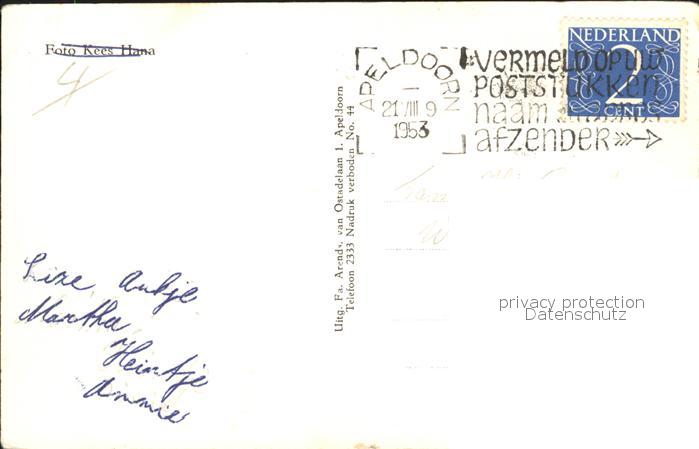 Foto Kees Hana
4
APELDOORN
I
21 VIII 9
1953
VERMELD OP UW
POSTSTUKKEN
naam
afzender
NEDERLAND
2
CENT
Uitg. Fa. Arends, van Ostadelaan 1, Apeldoorn
Telefoon 2333 Nadruk verboden No. 44
Fam
W
privacy protection
Datenschutz
Lize Antje
Martha
Heintje
Annie